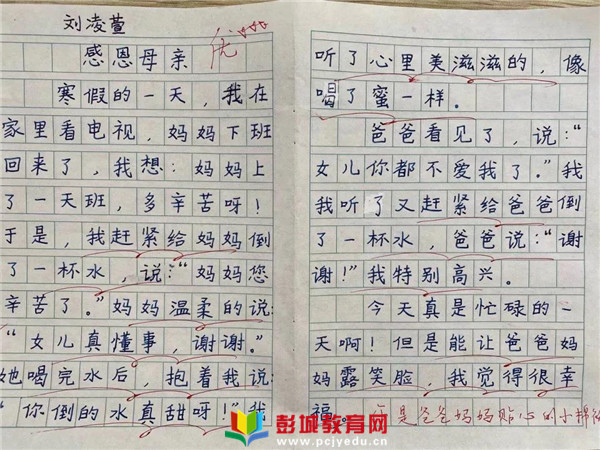 刘凌萱
感恩母亲
优
寒假的一天，我在
家里看电视，妈妈下班
回来了，我想：妈妈上
了一天班，多辛苦呀！
于是，我赶紧给妈妈倒
了一杯水，说：“妈妈您
辛苦了。”妈妈温柔的说：
“女儿真懂事，谢谢。”
她喝完水后，抱着我说：
“你倒的水真甜呀！”我
听了心里美滋滋的，像
喝了蜜一样。
爸爸看见了，说：“
女儿你都不爱我了。”我
我听了又赶紧给爸爸倒
了一杯水，爸爸说：“谢
谢！”我特别高兴。
今天真是忙碌的一
天啊！但是能让爸爸妈
妈露笑脸，我觉得很幸
福。
是爸爸妈妈贴心的小棉
彭城教育网
www.pcjyedu.cn